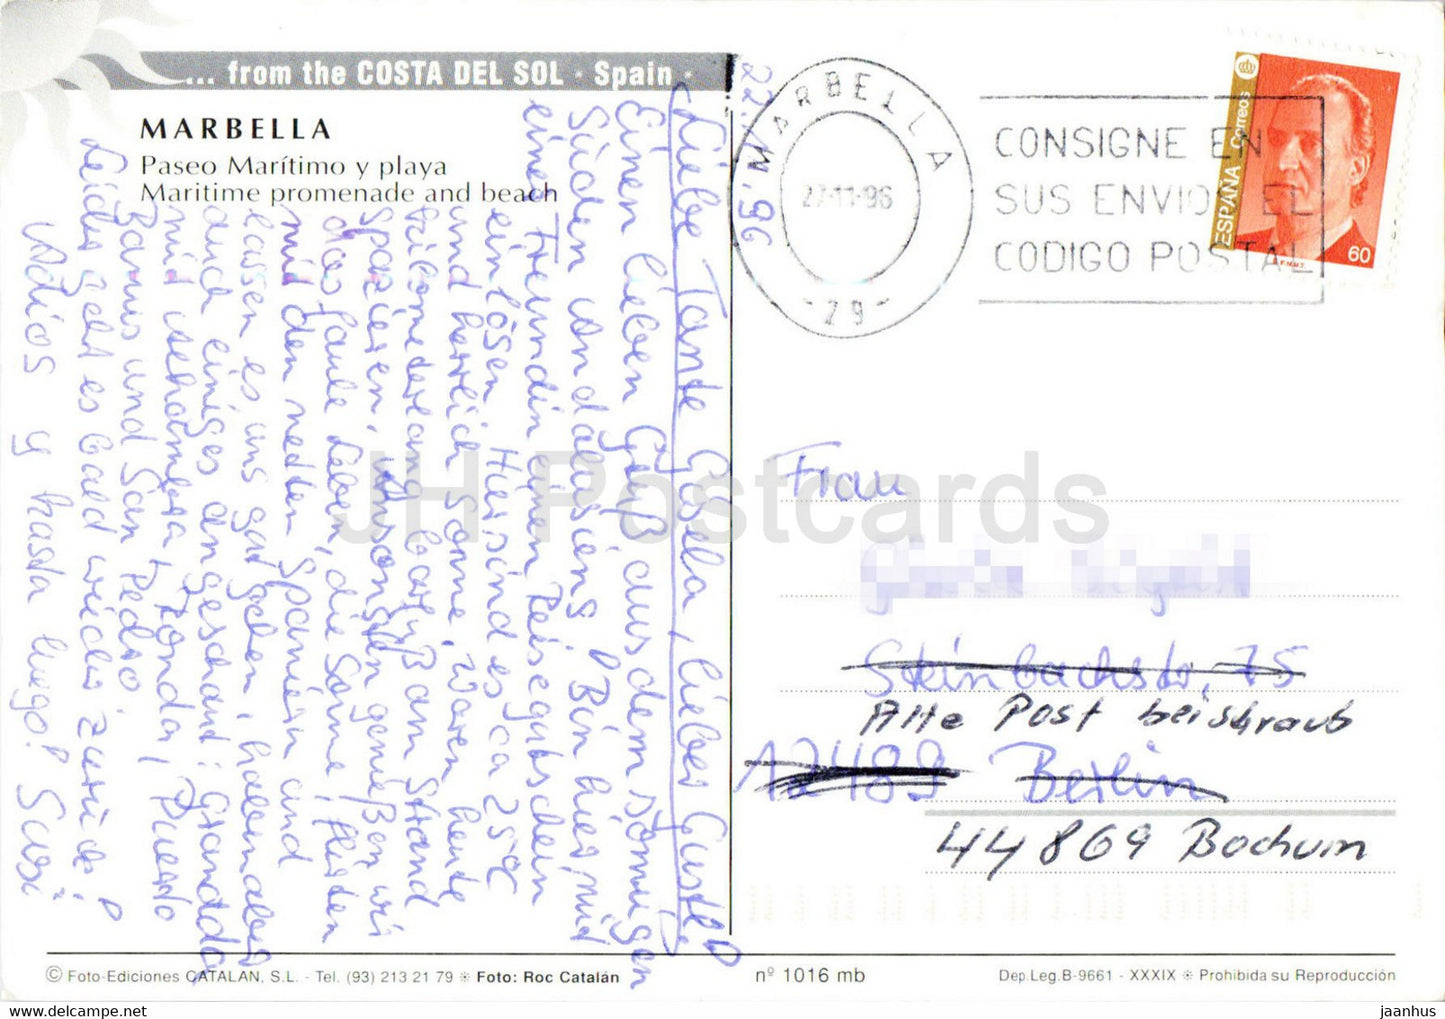 ... from the COSTA DEL SOL · Spain ·
MARBELLA
Paseo Marítimo y playa
Maritime promenade and beach
22.11.96
Liebe Tante Gisela, lieber Gustl!
Einen lieben Gruß aus dem sonnigen
Süden Andalusiens! Bin hier mit
einer Freundin einen Reisegutschein
einlösen. Hier sind es ca 25°C
und herrlich Sonne, waren heute
kilometerlang barfuß am Strand
spazieren. Ansonsten genießen wir
das faule Leben, die Sonne, flirten
mit den netten Spaniern und
lassen es uns gut gehen, haben aber
auch einiges angeschaut: Granada
mit Alhambra, Ronda, Puerto
Banus und San Pedro.
Leider geht es bald wieder zurück!
Adios y hasta luego! Susi
MARBELLA
22-11-96
- 29 -
CONSIGNE EN
SUS ENVIOS EL
CODIGO POSTAL
ESPAÑA Correos
60
F.N.M.T.
Frau
Steinbachstr. 75
Alte Post beischraub
12489 Berlin
44869 Bochum
JH Postcards
© Foto-Ediciones CATALAN, S.L. - Tel. (93) 213 21 79 ※ Foto: Roc Catalán
nº 1016 mb
Dep.Leg.B-9661 - XXXIX ※ Prohibida su Reproducción
www.jaanhus.delcampe.net
jaanhus